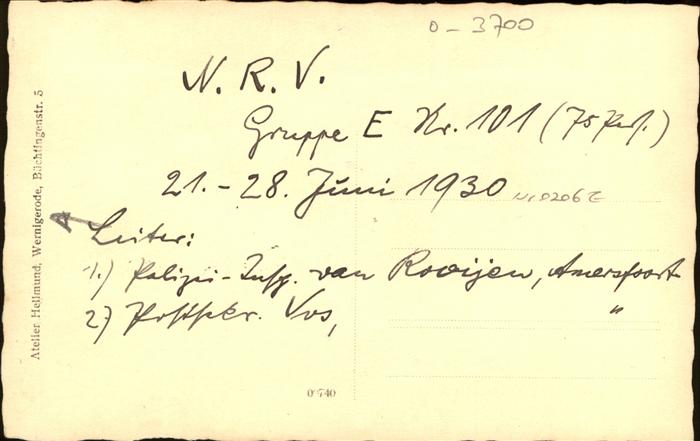 0-3700
N. R. V.
Gruppe E Nr. 101 (75 Pers.)
21. - 28. Juni 1930
Leiter:
1.) Polizei-Insp. van Rooijen, Amersfoort
2.) Postsekr. Vos, "
Atelier Hellmund, Wernigerode, Büchtingenstr. 5